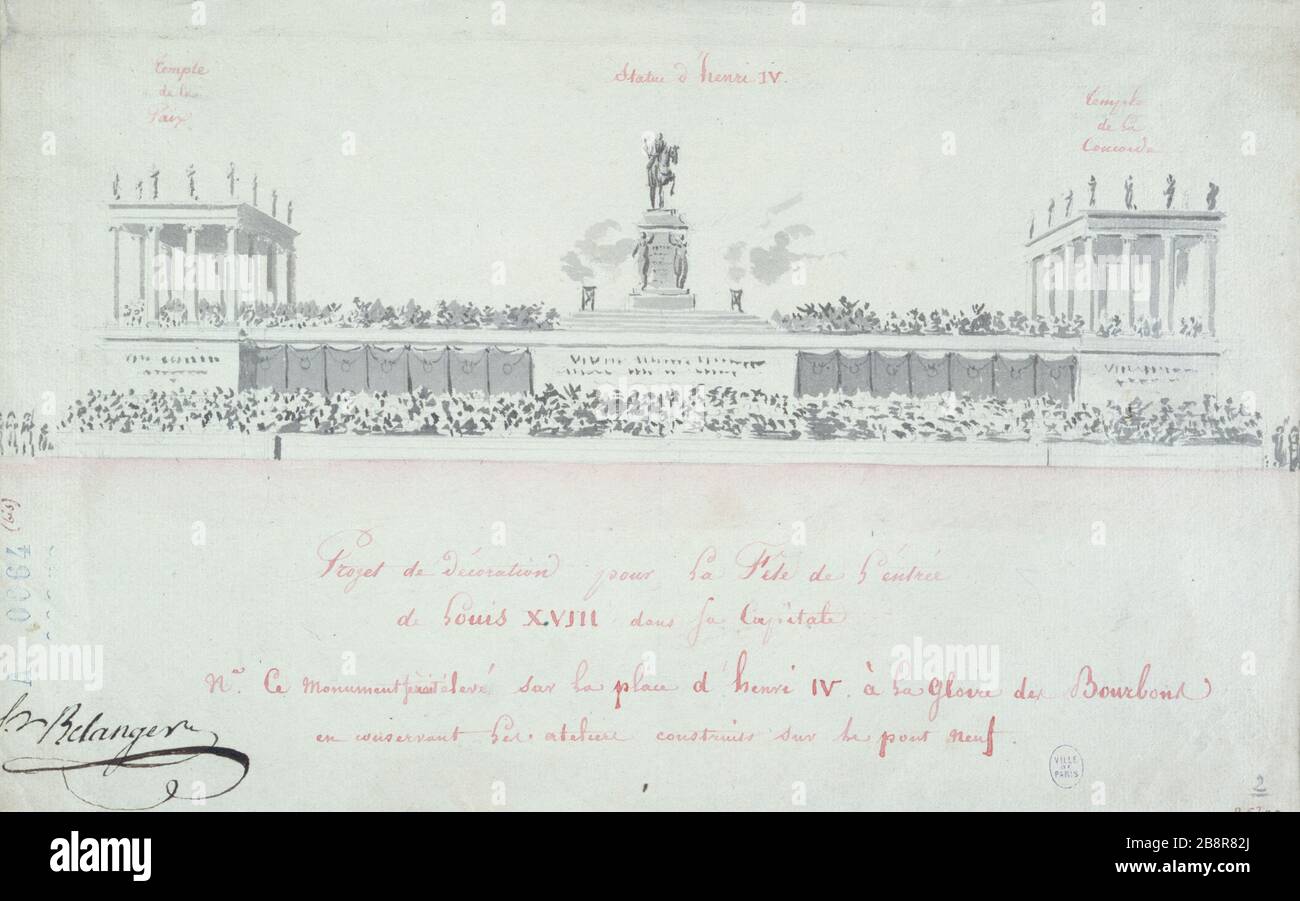 Temple
de la
Paix
Statue d'henri IV.
Temple
de la
Concorde
Projet de Décoration pour la Fête de l'entrée
de Louis XVIII dans sa Capitale
Nª. Ce Monument serait élevé sur la place d'henri IV. à la Gloire des Bourbons
en conservant les ateliers construits sur le pont neuf.
Belanger
(bis)
VILLE
DE
PARIS
2
alamy
Image ID: 2B8R82J
www.alamy.com